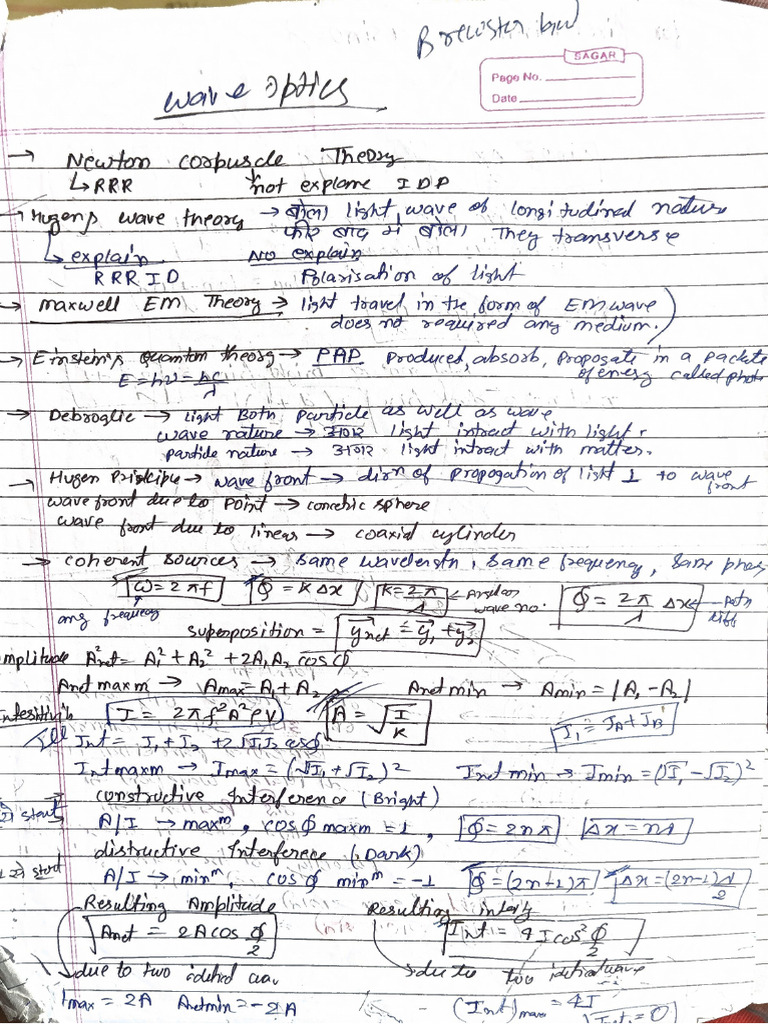 Brewster law
SAGAR
Page No.
Date
wave optics
→ Newton corpuscle Theory
↳ RRR ↳ not explane I D P
→ Hugens wave theory → बोला light wave of longitudinal nature
फिर बाद में बोला They transverse
↳ explain No explain
RRR I D Polarisation of light
→ maxwell EM Theory → light travel in the form of EM wave
does not required any medium.
→ Einstein's quantom theory → PAP Produced, absorb, Propogate in a packets
of energy called phot
E = hν = hc/λ
→ Debroglie → light Both particle as well as wave
wave nature → अगर light intract with light.
particle nature → अगर light intract with matter.
→ Hugen Principle → wave front → dirn of propogation of light ⊥ to wave
front
wave front due to point → concentric sphere
wave front due to linear → coaxial cylinder
→ coherent sources → same wavelength, same frequency, same phas
ω = 2πf Φ = K Δx K = 2π/λ ← wave no. Φ = 2π/λ Δx ← path diff
ang frequency
superposition = y⃗net = y⃗1 + y⃗2
Amplitude A²net = A1² + A2² + 2A1A2 cosΦ
Anet maxm → Amax = A1 + A2 Anet min → Amin = |A1 - A2|
I = 2πf²A²ρV A = √I/K
I1 = IA + IB
Inet = I1 + I2 + 2√I1I2 cosΦ
Inet maxm → Imax = (√I1 + √I2)² Inet min → Imin = (√I1 - √I2)²
constructive Interference (Bright)
start
A/I → maxm, cosΦ maxm = 1, Φ = 2nπ Δx = nλ
distructive Interference (Dark)
start
A/I → minm, cosΦ minm = -1 Φ = (2n+1)π Δx = (2n-1)λ/2
Resulting Amplitude Resulting
Anet = 2A cos Φ/2 Inet = 4I cos² Φ/2
due to two due to two
max = 2A Anetmin = -2A (Inet)max = 4I
= 0